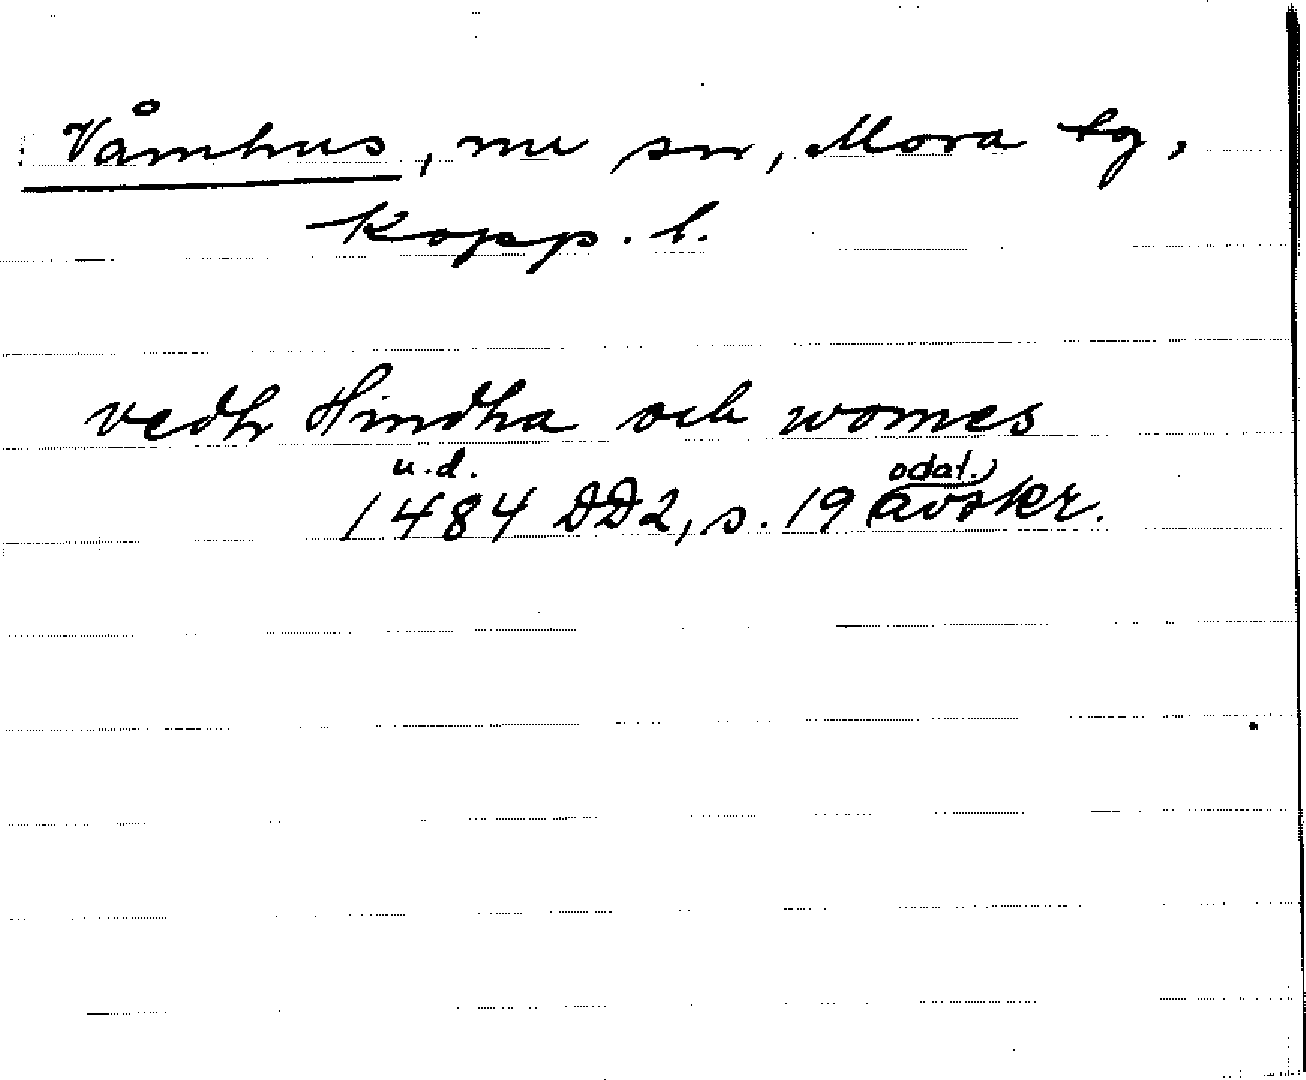 Våmhus, nu sn, Mora tg,
Kopp. l.
vedh Hindha och womes
u.d. odat.)
1484 DD2, s. 19 (avskr.